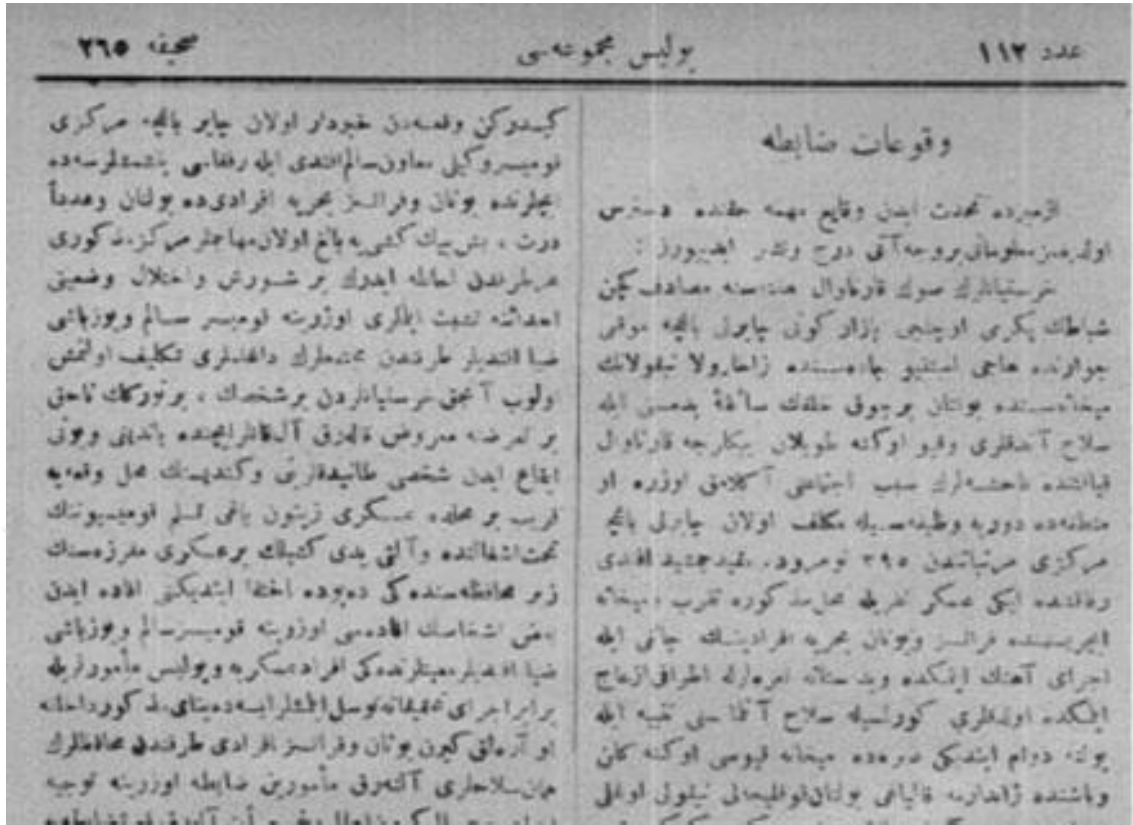 عدد ١١٢
پوليس مجموعه‌سى
صحيفه ٢٦٥
وقوعات ضابطه
ازميرده تحدث ايدن وقايع مهمه حقنده دسترس
اولديغمز معلوماتى بروجه آتى درج ونشر ايدييورز :
خرستيانلرك صوك قارناوال هفته‌سنه مصادف كچن
شباطك يكرمى اوچنجى پازار كونى چايرلى باغچه موقعى
جوارنده حاجى استفنو جاده‌سنده زاخارولا نيقولانك
ميخانه‌سنده بولنان برچوق خلقك سائقهٔ بدمستى ايله
سلاح آتدقلرى وقپو اوكنه طوپلانان بيكلرجه قارناوال
قيافتنده اجتماعى آكلامق اوزره او
منطقه‌ده دوريه وظيفه‌سيله مكلف اولان چايرلى باغچه
مركزى مرتباتندن ٣٩٥ نومرولى جمشيد افندى
رفاقتنده ايكى عسكر نفريله محل مذكوره تقرب وميخانه
ايچريسنده فرانسز ويونان بحريه افرادينك چالغى ايله
اجراى آهنك ايتمكده وبدمستانه نعره‌لرله اطرافى ازعاج
ايتمكده اولدقلرى كورلمسيله سلاح آتلمامسنى تنبيه ايله
يولنه دوام ايتديكى صره‌ده ميخانه قپوسى اوكنه كلن
وباشنده ژاندارمه قالپاغى بولنان اوغلى
كيدركن وقعه‌دن خبردار اولان چاير باغچه مركزى
قوميسر وكيلى معاون سالم افندى ايله رفقاسى يتيشمشلرسه‌ده
ايچلرنده يونان وفرانسز بحريه افرادى‌ده بولنان وعدداً
درت ، بش بيك كشى‌يه بالغ اولان مهاجملر مركز مذكورى
هر طرفدن احاطه ايدرك بر شورش واختلال وضعيتى
احداثنه تشبث ايتملرى اوزرينه قوميسر سالم ويوزباشى
ضيا افنديلر طرفندن مجتمعلرك داغلملرى تكليف اولنمش
اولوب آنجق خرستيانلردن برشخصك ، برتوركك ناحق
بر تعرضنه معروض قاله‌رق آل قانلر ايچنده ياتديغنى وبونى
ايقاع ايدن شخصى طانيدقلرينى وكنديسنك محل وقعه‌يه
قريب بر محلده عسكرى زيتون ياغى تسلم قوميسيوننك
تحت اشغالنده وآلتى يدى كشيلك بر عسكرى مفرزه‌سنك
زير محافظه‌سنده‌كى دپوده اختفا ايتديكنى افاده ايدن
بعض اشخاصك افاده‌سى اوزرينه قوميسر سالم ويوزباشى
ضيا افنديلر معيتلرنده‌كى افراد عسكريه وپوليس مأمورلريله
برابر اجراى تحقيقاته توسل ايتمشلرايسه‌ده بناى مذكور داخلنه
او آره‌لق كيرن يونان وفرانسز افرادى طرفندن محافظلرك
همان سلاحلرى آلنه‌رق مأمورين ضابطه اوزرينه توجيه